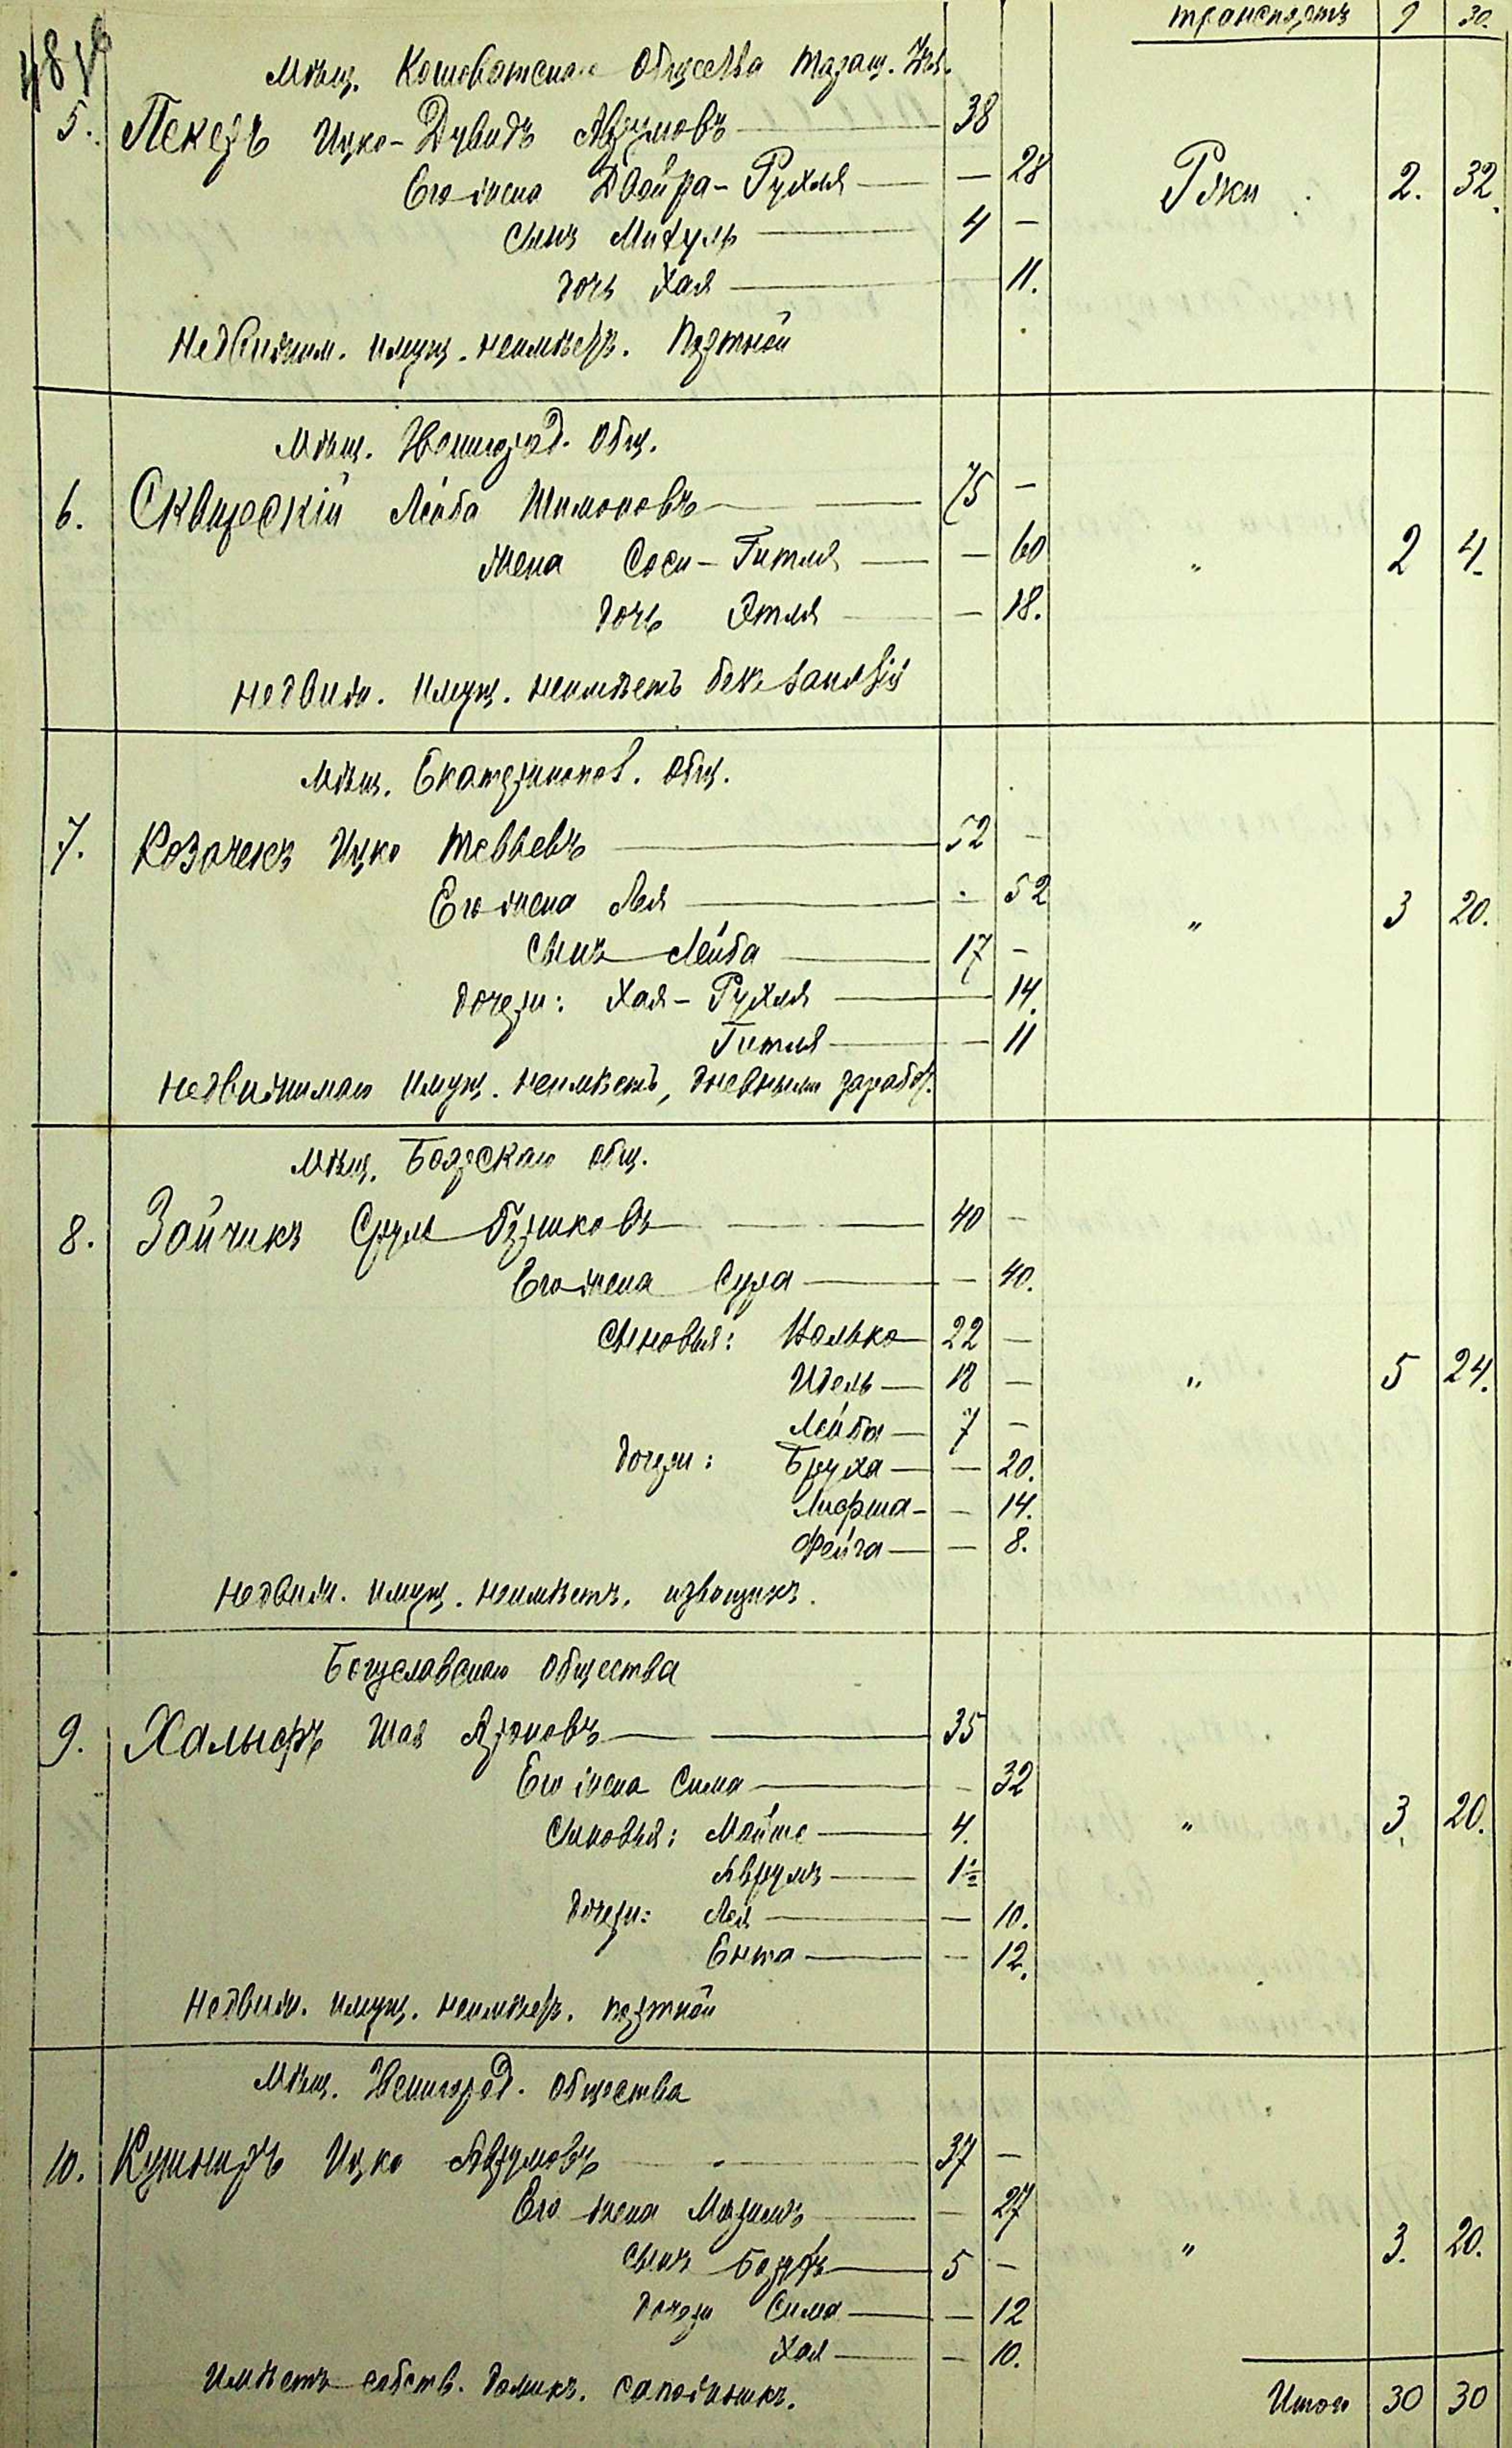 транспортъ 9 30.
Мѣщ. Кошеватскаго Общества Таращ. Уѣз.
5. Пекеръ Ицко-Дувидъ Аврумовъ — 38
Его жена Двойра-Рухля — — 28 Ряки 2. 32.
сынъ — 4 —
дочь Хая — 11.
недвижим. имущ. неимѣетъ. Портной
Мѣщ. Звенигород. общ.
6. Сквирскій Лейба Шимоновъ — 75 —
Жена Соси-Гитля — — 60 „ 2 4.
дочь Этля — — 18.
недвиж. имущ. неимѣетъ безъ занятій
Мѣщ. Екатеринопол. общ.
7. Козачекъ Ицко Тевьевъ — 52 —
Его жена Лея — - 52 „ 3 20.
сынъ Лейба — 17 —
дочери: Хая-Рухля — 14.
Гитля — — 11
недвижимаго имущ. неимѣетъ, дневными заработ.
Мѣщ. Боярскаго общ.
8. Зайчикъ Сруль Берковъ — 40 —
Его жена Сура — — 40.
сыновья: Волько — 22 —
Идель — 18 — „ 5 24.
Лейба — 7 —
дочери: Бруха — — 20.
— 14.
Фейга — — 8.
недвиж. имущ. неимѣетъ, извощикъ.
Богуславскаго Общества
9. Халыфъ Шая Ароновъ — 35
Его жена Сима — — 32
сыновья: Мойше — 4. „ 3. 20.
Аврумъ — 1½
дочери: Лея — — 10.
Ента — — 12.
недвиж. имущ. неимѣетъ. портной
Мѣщ. Звенигород. общества
10. Кушниръ Ицко Аврумовъ — 37 —
Его жена — — 27
сынъ Борухъ — 5 — „ 3. 20.
дочери Сима — — 12
Хая — — 10.
Имѣетъ собств. домикъ. сапожникъ.
Итого 30 30